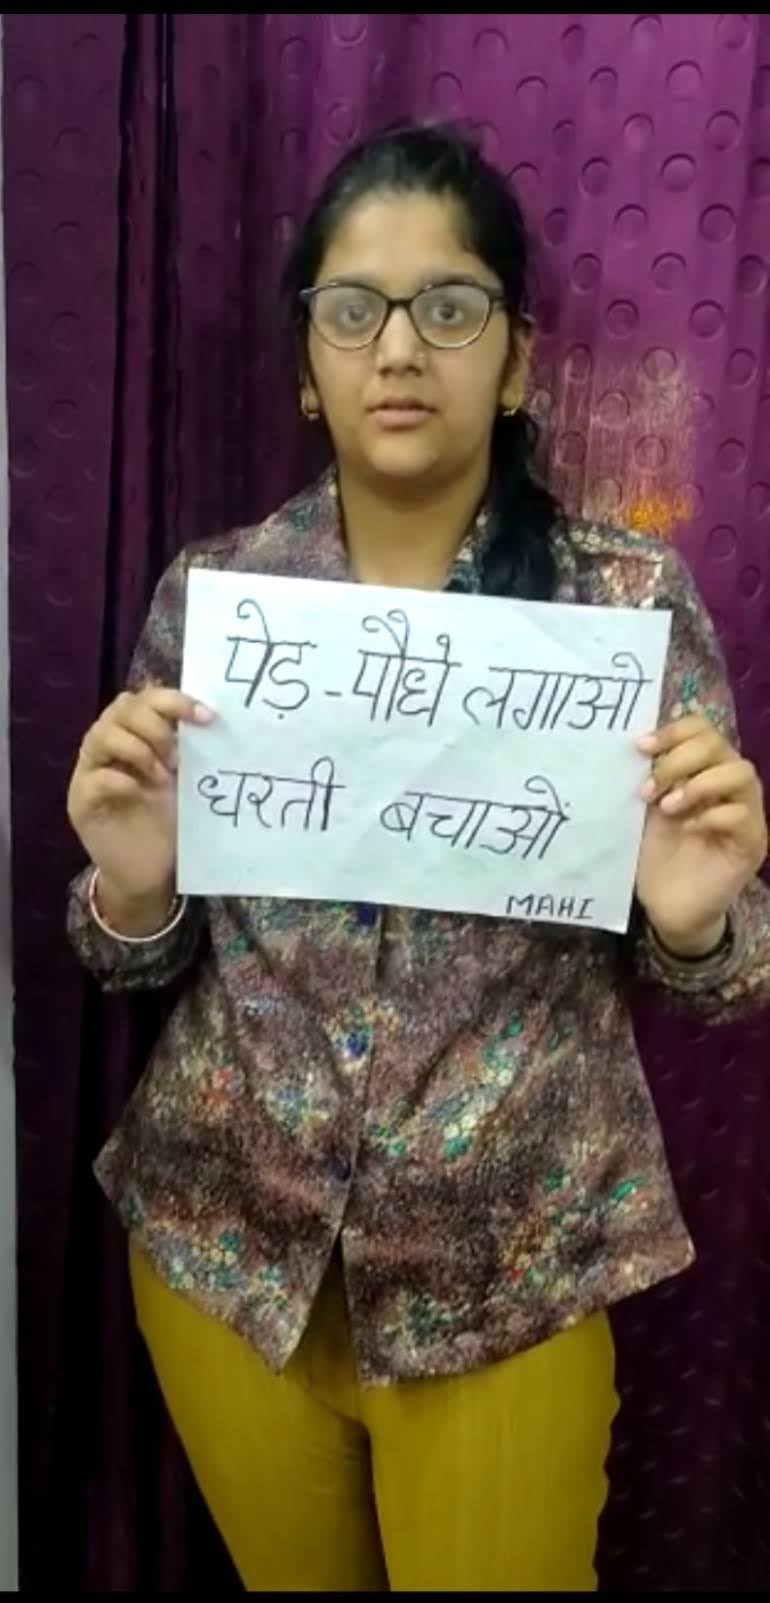 पेड़-पौधे लगाओ
धरती बचाओं
MAHI